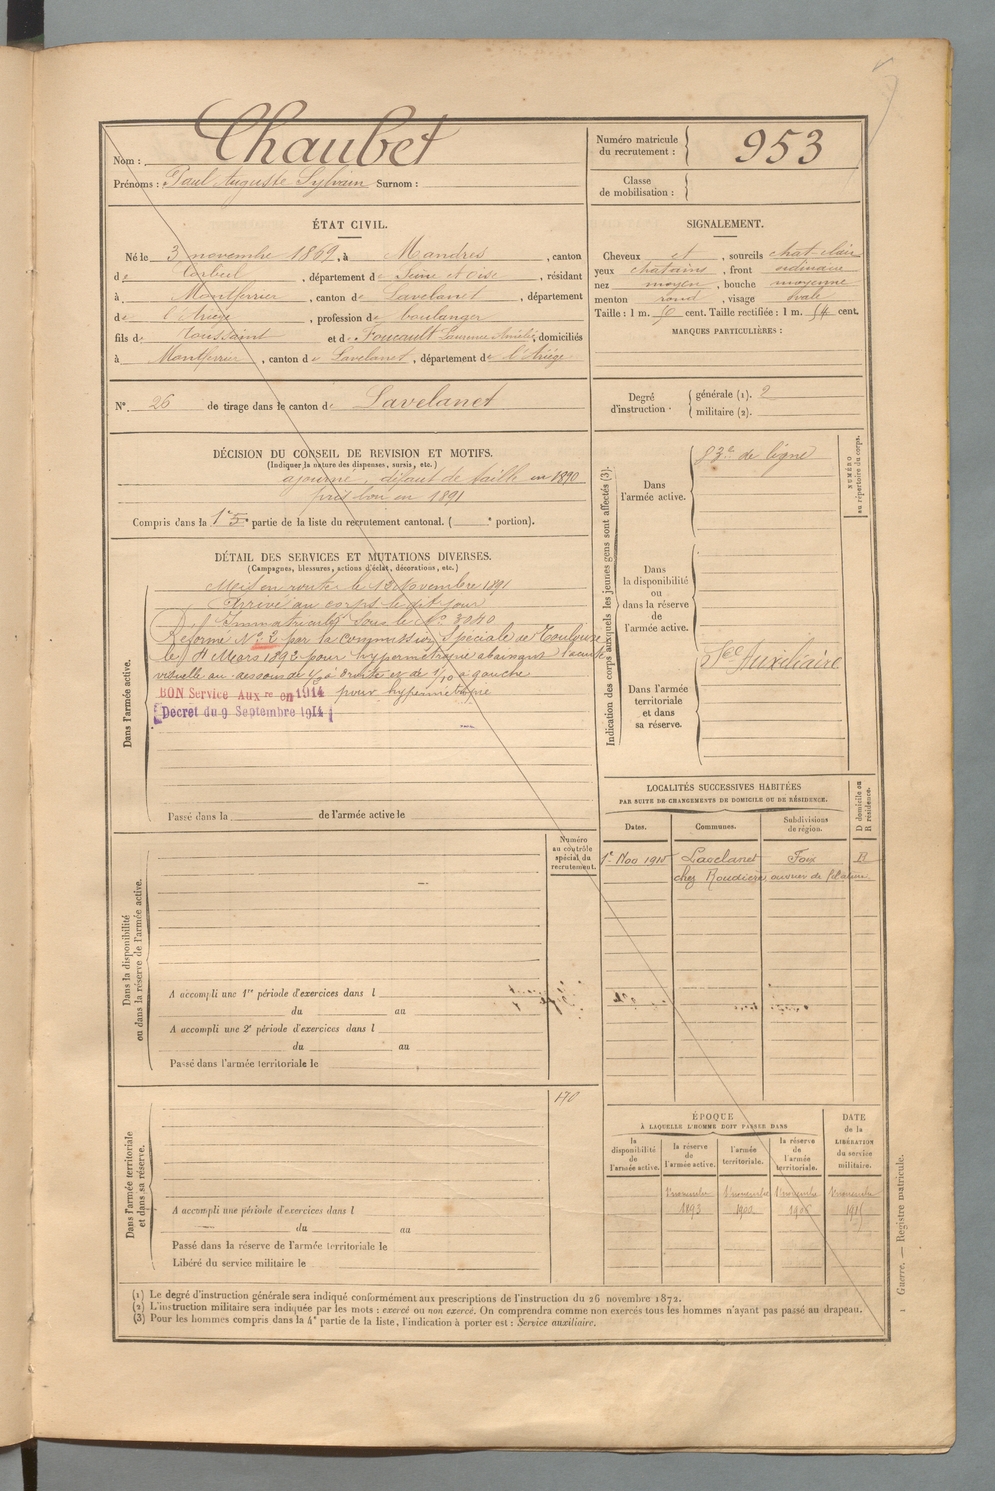 Nom : Chaubet
Prénoms : Paul Auguste Sylvain Surnom :
Numéro matricule du recrutement : 953
Classe de mobilisation :
ÉTAT CIVIL.
Né le 3 novembre 1869, à Mandres, canton
de Corbeil, département de Seine et Oise, résidant
à Montferrier, canton de Lavelanet, département
de l'Ariège, profession de boulanger
fils de Toussaint et de Foucault Laurence Amélie, domiciliés
à Montferrier, canton de Lavelanet, département de l'Ariège
N° 26 de tirage dans le canton de Lavelanet
SIGNALEMENT.
Cheveux et, sourcils chat-clair
yeux chatains, front ordinaire
nez moyen, bouche moyenne
menton rond, visage ovale
Taille : 1 m. 50 cent. Taille rectifiée : 1 m. 54 cent.
MARQUES PARTICULIÈRES :
Degré d'instruction. générale (1). 2
militaire (2).
DÉCISION DU CONSEIL DE REVISION ET MOTIFS.
(Indiquer la nature des dispenses, sursis, etc.)
ajourné, défaut de taille en 1890
pris bon en 1891
Compris dans la 1re partie de la liste du recrutement cantonal. ( e portion).
DÉTAIL DES SERVICES ET MUTATIONS DIVERSES.
(Campagnes, blessures, actions d'éclat, décorations, etc.)
Dans l'armée active.
Mis en route le 13 Novembre 1891
Arrivé au corps le dt jour
Immatriculé sous le N° 3040
Réformé N° 2 par la commission spéciale de Toulouse
le 4 Mars 1892 pour hypermétropie abaissant l'acuité
visuelle au-dessous de à droite et de 1/10 à gauche
BON Service Auxre en 1914 pour hypermétropie
Décret du 9 Septembre 1914
Passé dans la de l'armée active le
Indication des corps auxquels les jeunes gens sont affectés (3).
NUMÉRO au répertoire du corps.
Dans l'armée active.
83e de ligne
Dans la disponibilité ou dans la réserve de l'armée active.
Dans l'armée territoriale et dans sa réserve.
Sce Auxiliaire
LOCALITÉS SUCCESSIVES HABITÉES
PAR SUITE DE CHANGEMENTS DE DOMICILE OU DE RÉSIDENCE.
D domicile ou R résidence.
Dates. Communes. Subdivisions de région.
1er Nov 1915 Lavelanet Foix R
chez Roudière ouvrier de filature
Dans la disponibilité ou dans la réserve de l'armée active.
Numéro au contrôle spécial du recrutement.
A accompli une 1re période d'exercices dans l
du au
A accompli une 2e période d'exercices dans l
du au
Passé dans l'armée territoriale le
Dans l'armée territoriale et dans sa réserve.
170
A accompli une période d'exercices dans l
du au
Passé dans la réserve de l'armée territoriale le
Libéré du service militaire le
ÉPOQUE
À LAQUELLE L'HOMME DOIT PASSER DANS
DATE de la LIBÉRATION du service militaire.
la disponibilité de l'armée active. la réserve de l'armée active. l'armée territoriale. la réserve de l'armée territoriale.
1 novembre 1 novembre 1 novembre 1 novembre
1893
(1) Le degré d'instruction générale sera indiqué conformément aux prescriptions de l'instruction du 26 novembre 1872.
(2) L'instruction militaire sera indiquée par les mots : exercé ou non exercé. On comprendra comme non exercés tous les hommes n'ayant pas passé au drapeau.
(3) Pour les hommes compris dans la 4e partie de la liste, l'indication à porter est : Service auxiliaire.
1 Guerre. — Registre matricule.